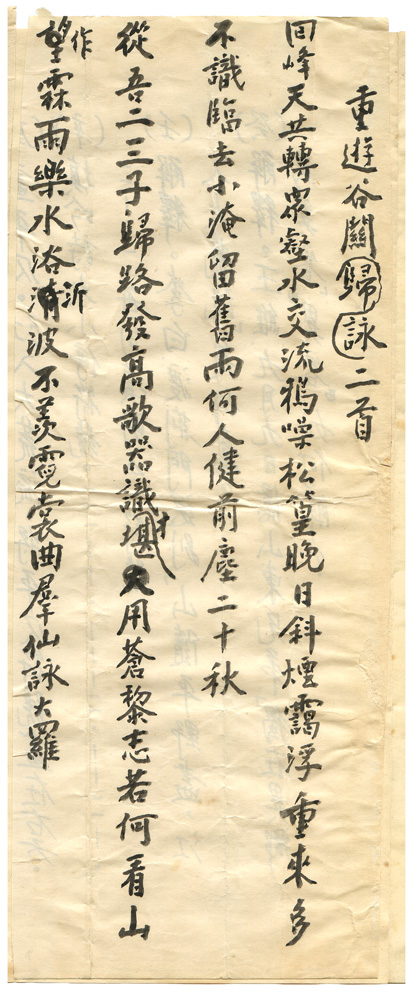 重遊谷關歸詠二首
回峰天共轉眾壑水交流鴉噪松篁晚日斜煙靄浮重來多
不識臨去小淹留舊雨何人健前塵二十秋
從吾二三子歸路發高歌器識堪才大用蒼黎志若何看山
作望霖雨樂水浴沂清波不羨霓裳曲羣仙詠大羅